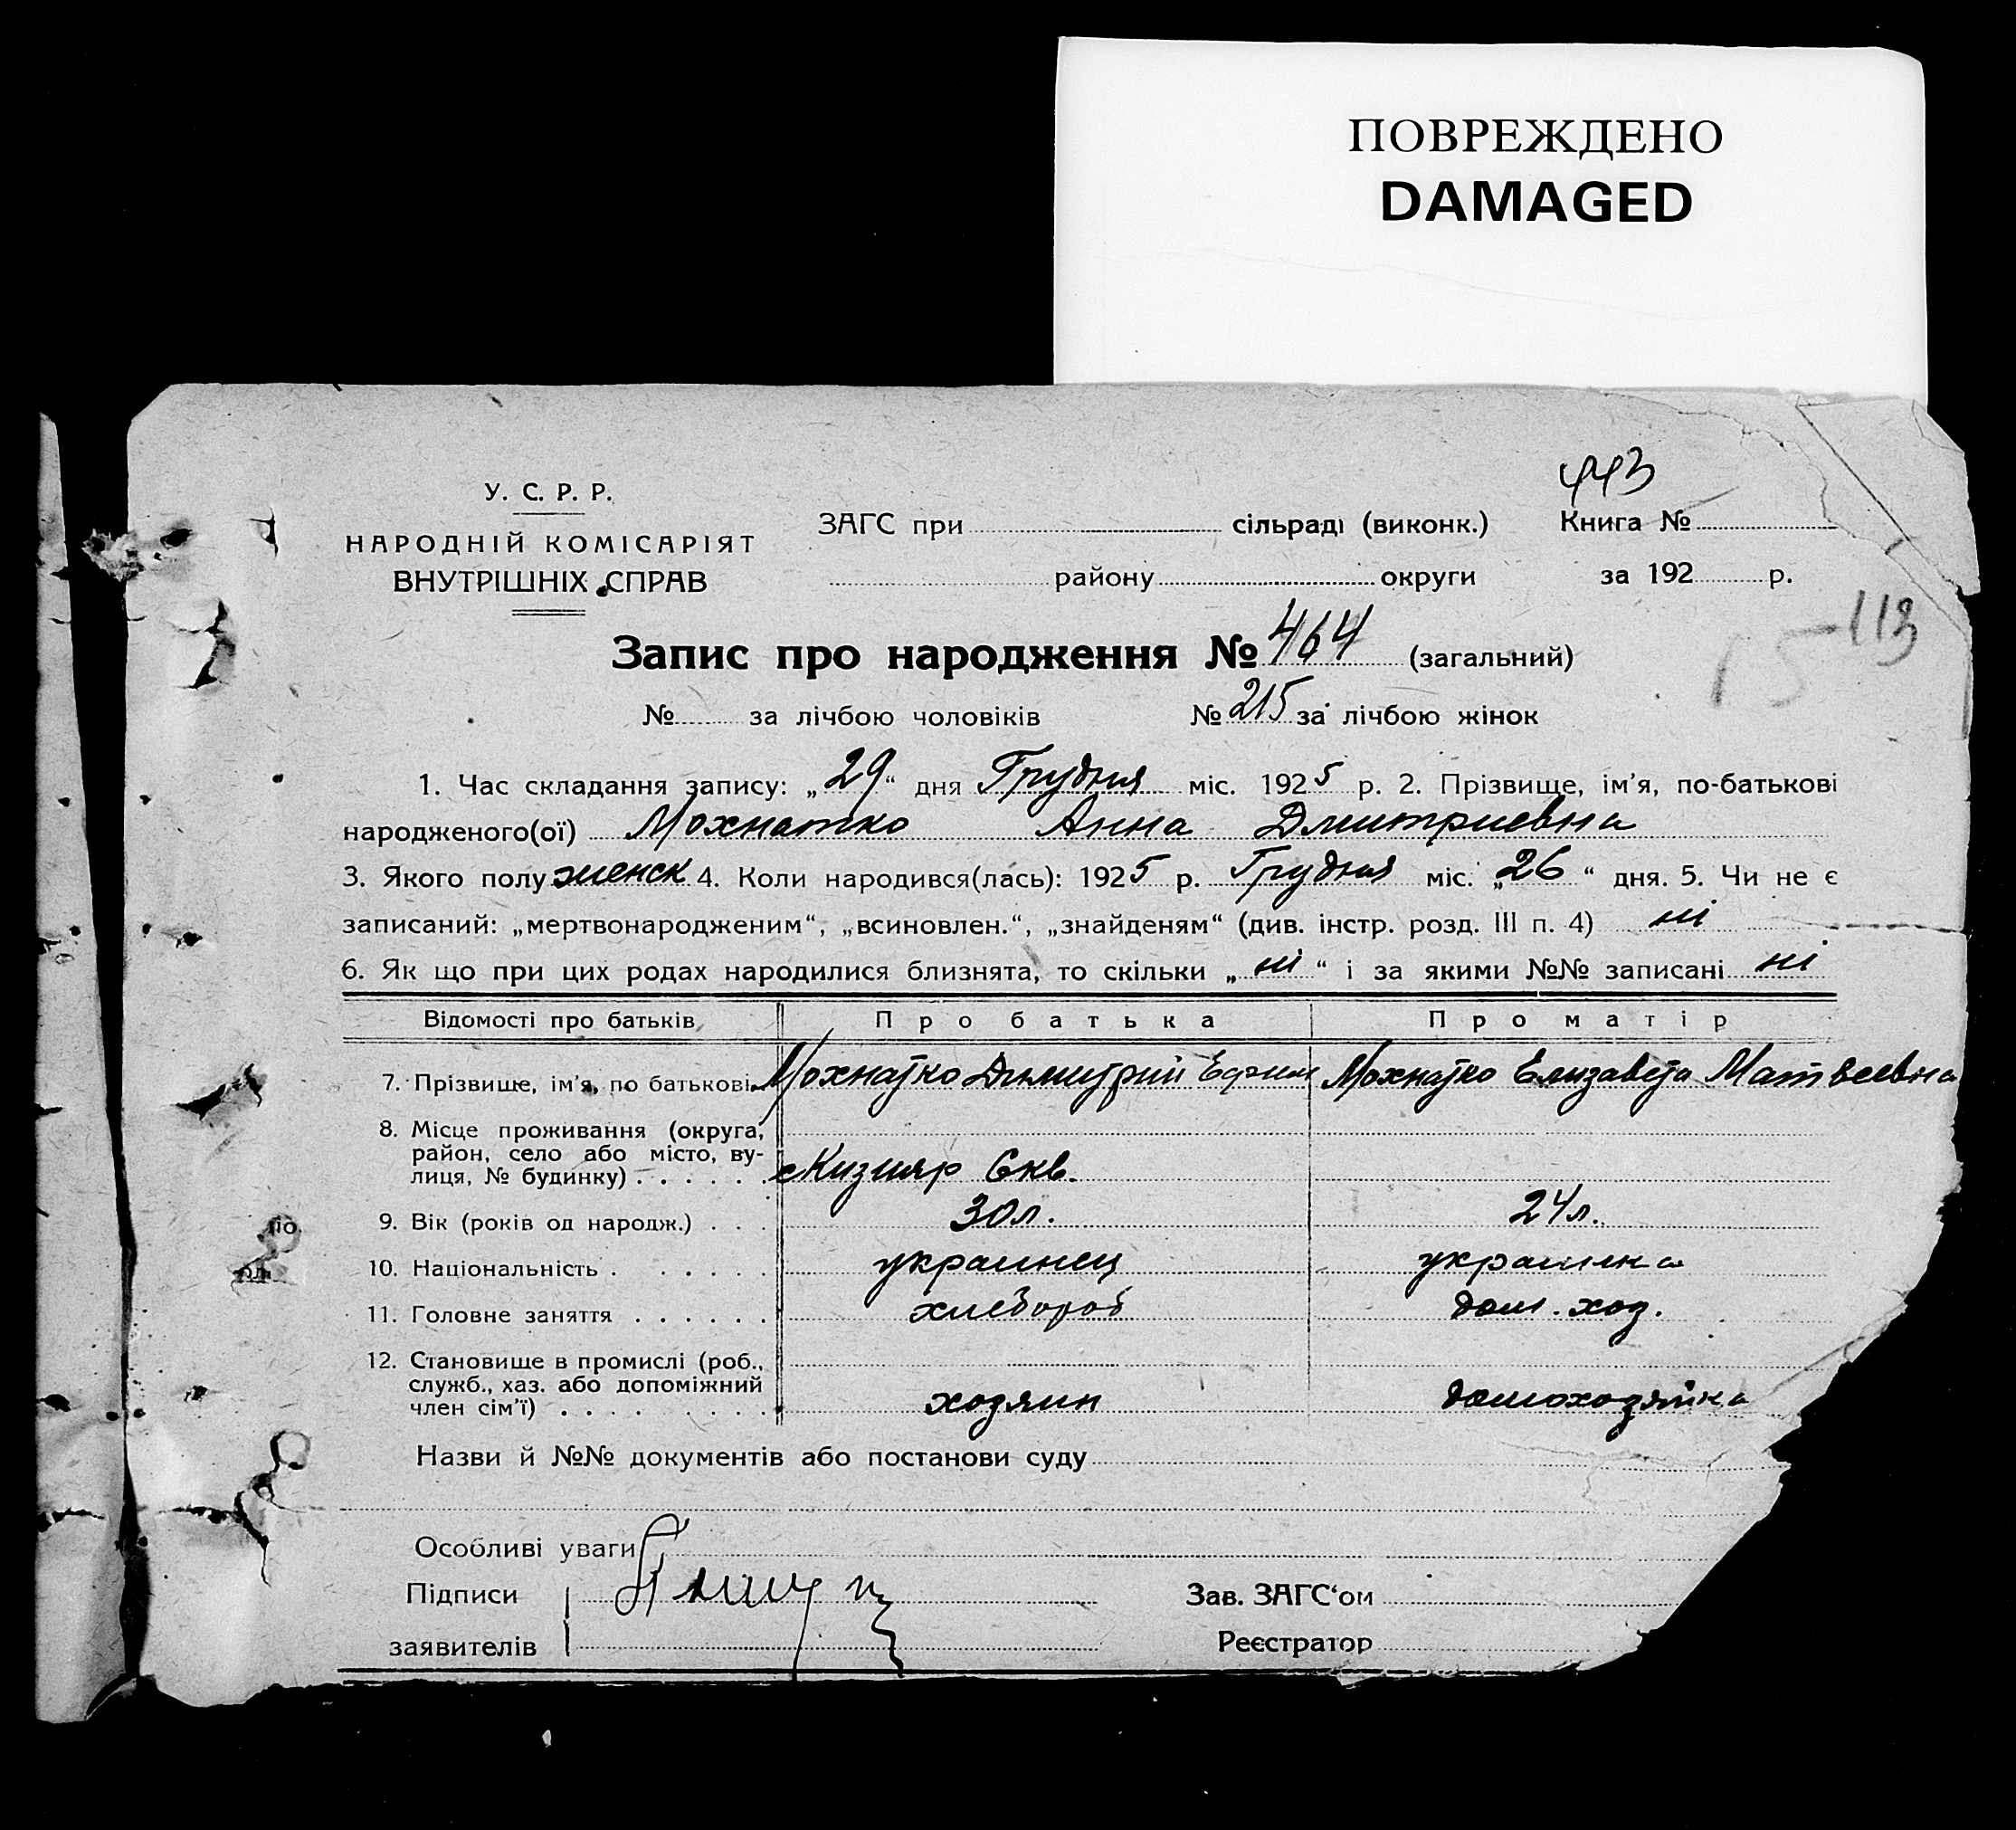 ПОВРЕЖДЕНО
DAMAGED
443
У. С. Р. Р.
НАРОДНІЙ КОМІСАРІЯТ
ВНУТРІШНІХ СПРАВ
ЗАГС при сільраді (виконк.) Книга №
району округи за 192 р.
113
15
Запис про народження № 464 (загальний)
№ за лічбою чоловіків № 215 за лічбою жінок
1. Час складання запису: „29“ дня Грудня міс. 1925 р. 2. Прізвище, ім’я, по-батькові
народженого(ої) Мохнатко Анна Дмитриевна
3. Якого полу женск 4. Коли народився(лась): 1925 р. Грудня міс. „26“ дня. 5. Чи не є
записаний: „мертвонародженим“, „всиновлен.“, „знайденям“ (див. інстр. розд. III п. 4) ні
6. Як що при цих родах народилися близнята, то скільки „ні“ і за якими №№ записані ні
Відомості про батьків Про батька Про матір
7. Прізвище, ім’я, по батькові Мохнатко Димитрий Ефим Мохнатко Елизавета Матвеевна
8. Місце проживання (округа,
район, село або місто, ву-
лиця, № будинку) . . . . . . с Кизияр
9. Вік (років од народж.) . . . 30л. 24л.
10. Національність . . . . . . украинец украинка
11. Головне заняття . . . . . . хлебороб дом. хоз.
12. Становище в промислі (роб.,
служб., хаз. або допоміжний
член сім’ї) . . . . . . . . . хозяин домохозяйка
Назви й №№ документів або постанови суду
Особливі уваги
Підписи Зав. ЗАГС‘ом
заявителів Реєстратор